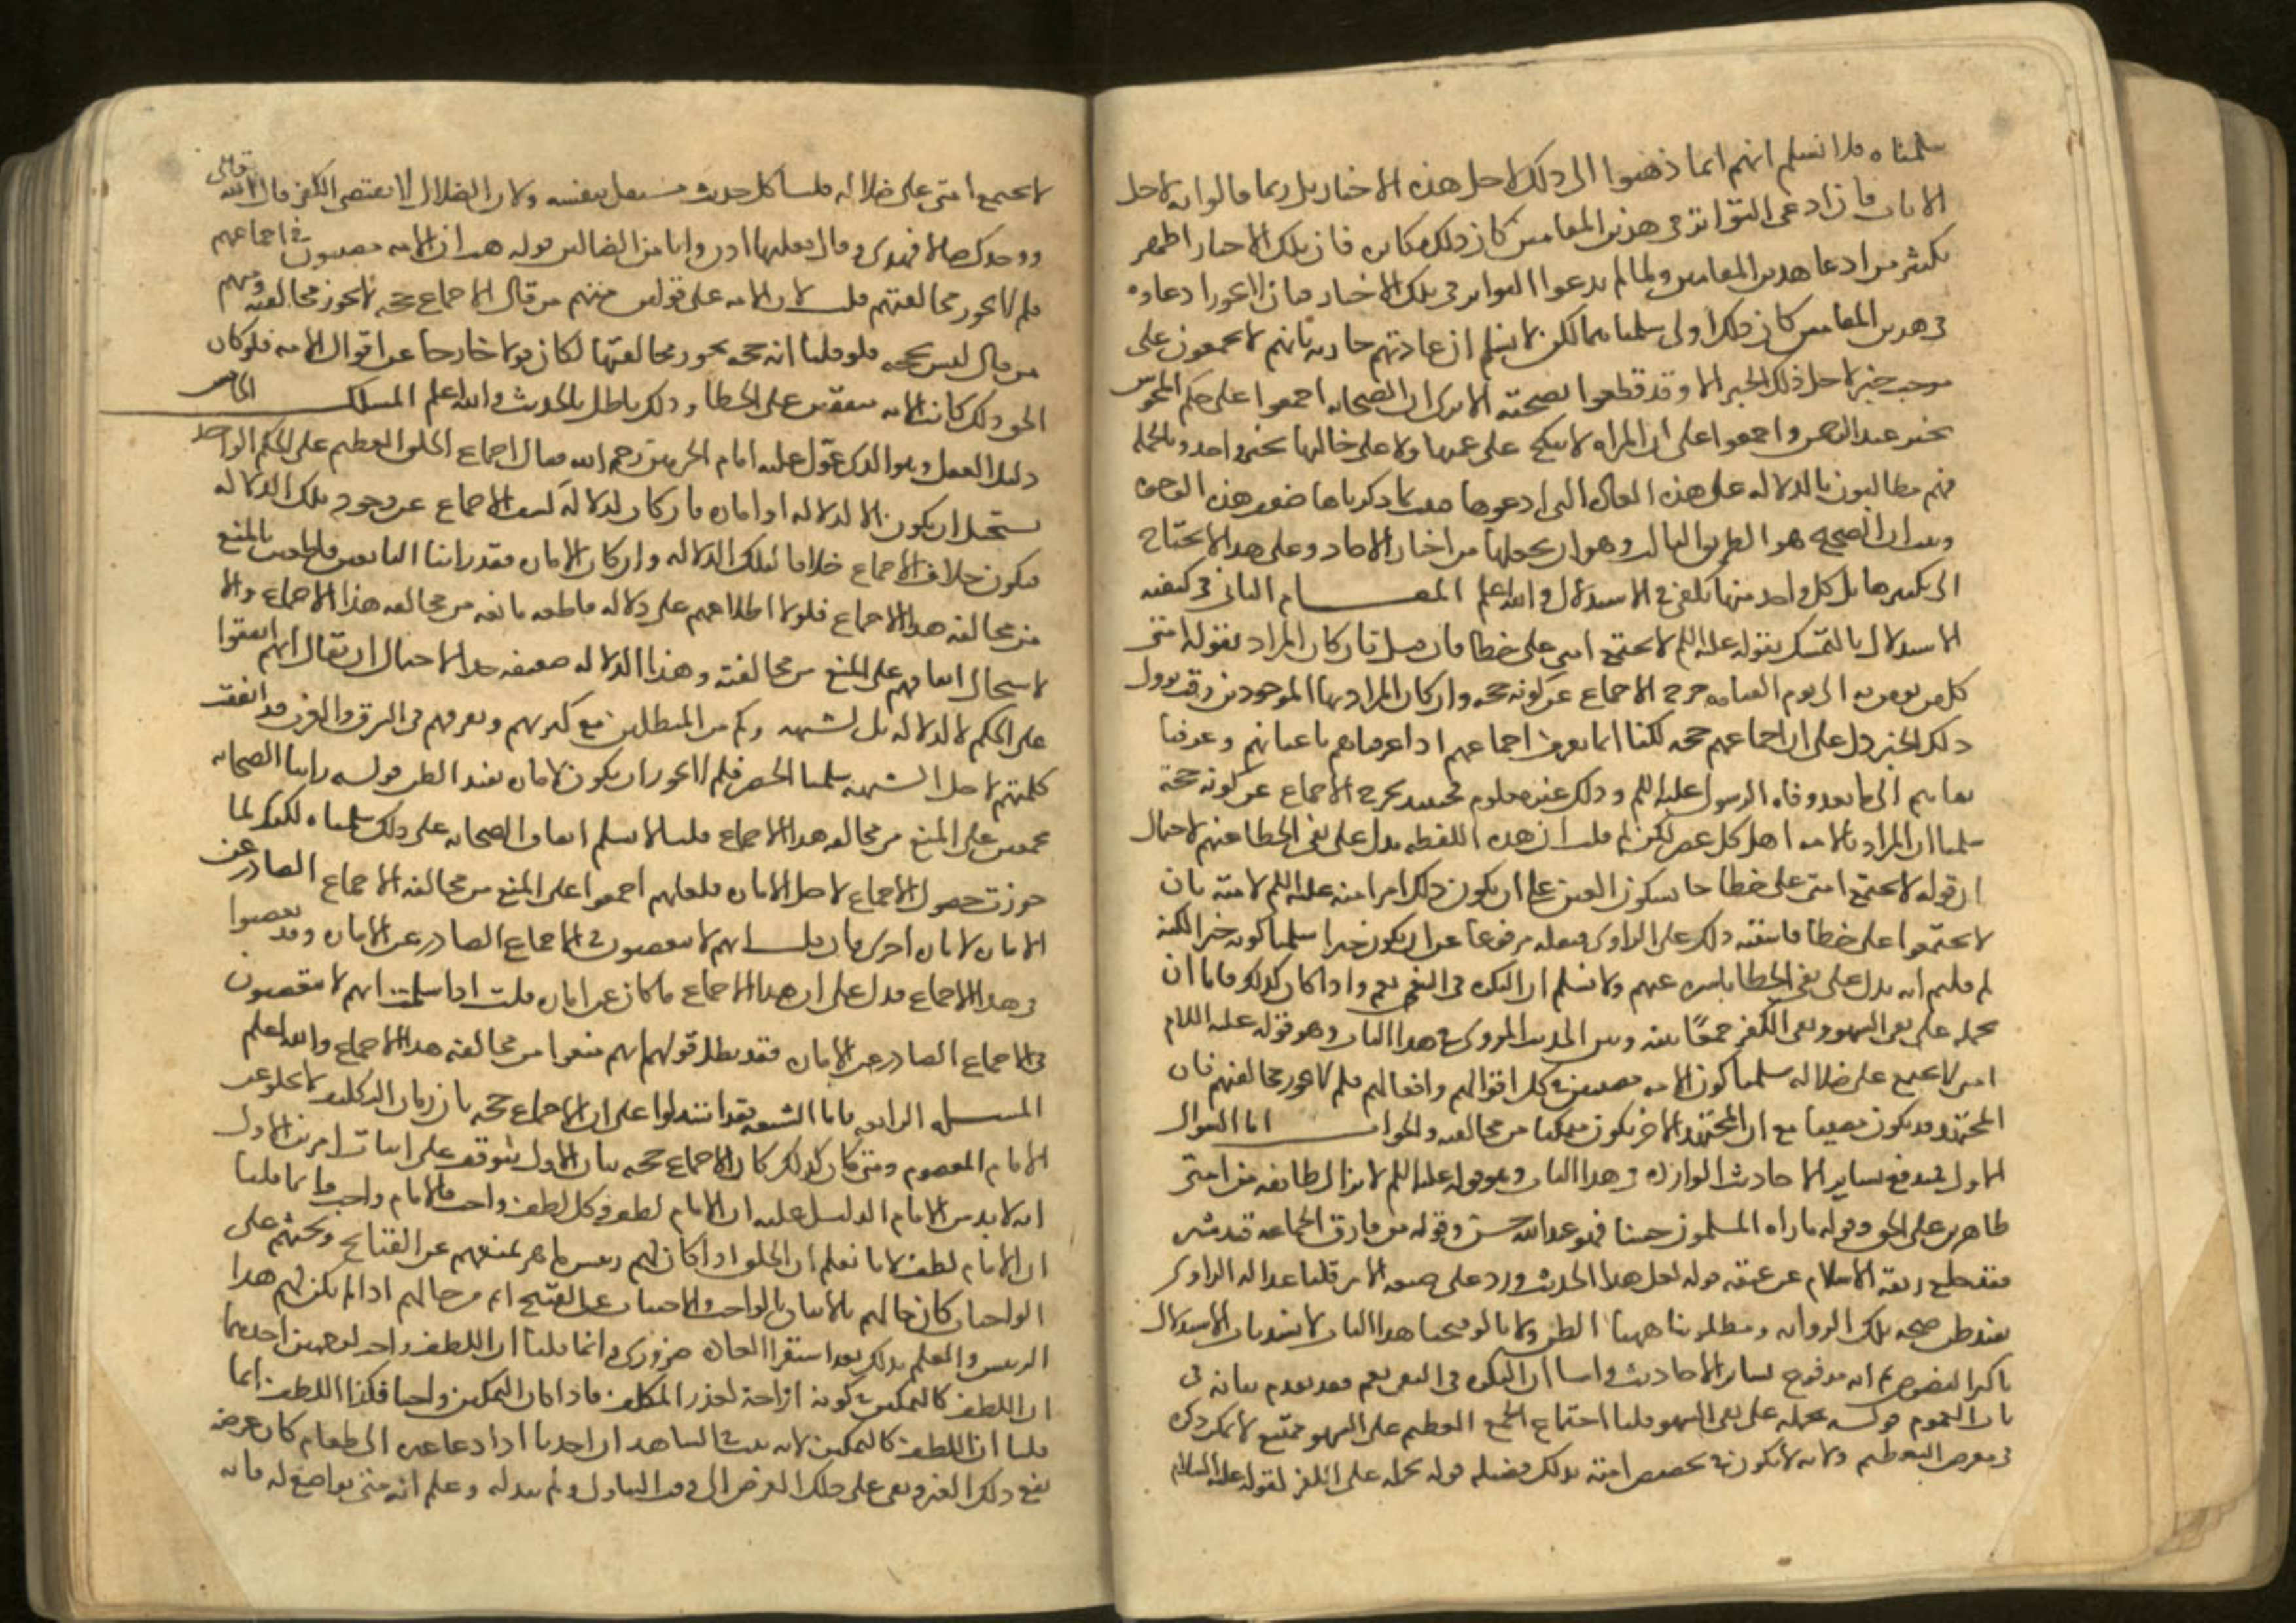 سلمناه فلا نسلم انهم انما ذهبوا الى ذلك لاجل هذه الاخبار بل ربما قالوا به لاجل
الايات فان ادعى التواتر في هذين المقامين كان ذلك مكابره فان تلك الاخبار اظهر
بكثير من ادعا هذين المقامين ولما لم يدعوا التواتر في تلك الاخبار فبان لا يجوز ادعاوه
في هذين المقامين كان ذلك اولى سلمناهما لكن لا نسلم ان عادتهم جاريه بانهم لا يجمعون على
موجب خبر لاجل ذلك الخبر الا وقد قطعوا بصحته الا ترى ان الصحابه اجمعوا على حكم المجوس
بخبر عبد الرحمن واجمعوا على ان المراه لا تنكح على عمتها ولا على خالتها بخبر واحد وبالجمله
فهم مطالبون بالدلاله على هذه العاده التي ادعوها فثبت بما ذكرناه ضعف هذه الوجوه
وثبت ان الصحيح هو الطريق الثالث وهو ان نجعلها من اخبار الاحاد وعلى هذا لا نحتاج
الى تكثيرها بل كل واحد منها يكفي في الاستدلال والله اعلم المقام الثاني في كيفيه
الاستدلال بالتمسك بقوله عليه السلم لا تجتمع امتي على خطا فان قيل ان كان المراد بقوله امتي
كل من يومن به الى يوم القيامه خرج الاجماع عن كونه حجه وان كان المراد بها الموجودين وقت نزول
ذلك الخبر دل على ان اجماعهم حجه لكنا انما نعرف اجماعهم اذا عرفناهم باعيانهم وعرفنا
بقاهم الى ما بعد وفاه الرسول عليه السلم وذلك غير معلوم فحينئذ يخرج الاجماع عن كونه حجة
سلمنا ان المراد بالامه اهل كل عصر لكن لم قلت ان هذه اللفظه تدل على نفي الخطا عنهم لاحتمال
ان قوله لا تجتمع امتي على خطا جا بسكون العين على ان يكون ذلك امرا منه عليه السلم لامته بان
لا يجتمعوا على خطا فاشتبه ذلك على الراوي فنقله مرفوعا على ان يكون خبرا سلمنا كونه خبرا لكنه
لم قلتم انه يدل على نفي الخطا باسره عنهم ولا نسلم ان النكره في النفي تعم واذا كان كذلك فاما ان
نحمله على نفي السهو ونفي الكفر جمعًا بينه وبين الحديث المروي في هذا الباب وهو قوله عليه السلام
امتي لا تجتمع على ضلاله سلمنا كون الامه مصيبين في كل اقوالهم وافعالهم فلم لا يجوز مخالفتهم فان
المجتهد قد يكون مصيبا مع ان المجتهد الاخر يكون متمكنا من مخالفته والجواب اما السوال
الاول فيندفع بساير الاحاديث الوارده في هذا الباب وهو قوله عليه السلم لا تزال طايفه من امتي
ظاهرين على الحق وقوله ما راه المسلمون حسنا فهو عند الله حسن وقوله من فارق الجماعه قيد شبر
فقد خلع ربقة الاسلام عن عنقه قوله لعل هذا الحديث ورد على صيغه الامر قلنا عداله الراوي
تفيد ظن صحه تلك الروايه ومطلوبنا ههنا الظن ولانا لو فتحنا هذا الباب لانسد باب الاستدلال
باكثر النصوص ثم انه مدفوع بساير الاحاديث واما ان النكره في النفي تعم فقد تقدم بيانه في
باب العموم قوله نحمله على نفي السهو قلنا اجتماع الجمع العظيم على السهو ممتنع لا يمكن ذكره
في معرض التعظيم ولانه لا يكون في تخصيص امته بذلك فضيله قوله نحمله على الكفر لقوله عليه السلام
لا تجتمع امتي على ضلاله قلنا كل حديث مستقل بنفسه ولان الضلال لا يقتضي الكفر قال الله تعالى
ووجدك ضالا فهدى وقال فعلتها اذن وانا من الضالين قوله هب ان الامه مصيبون في اجماعهم
فلم لا يجوز مخالفتهم قلنا لان الامه على قولين منهم من قال الاجماع حجه لا يجوز مخالفته ومنهم
من قال ليس بحجه فلو قلنا انه حجه يجوز مخالفتها لكان قولا خارجا عن اقوال الامه فلو كان
الحق ذلك كانت الامه متفقين على الخطا وذلك باطل بالحديث والله اعلم المسلك الخامس
دليل العقل وهو الذي عوّل عليه امام الحرمين رحمه الله فقال اجماع الخلق العظيم على الحكم الواحد
يستحيل ان يكون الا لدلاله او اماره فان كان لدلالة كشف الاجماع عن وجود تلك الدلاله
فيكون خلاف الاجماع خلافا لتلك الدلاله وان كان لاماره فقد راينا التابعين قاطعين بالمنع
من مخالفه هذا الاجماع فلولا اطلاعهم على دلاله قاطعه مانعه من مخالفه هذا الاجماع والا
لاستحال اتفاقهم على المنع من مخالفته وهذا الدلاله ضعيفه جدا لاحتمال ان يقال انهم اتفقوا
على الحكم لا لدلاله بل لشبهه وكم من المبطلين مع كثرتهم وتفرقهم في الشرق والغرب قد اتفقت
كلمتهم لاجل الشبهه سلمنا الحصر فلم لا يجوز ان يكون لاماره تفيد الظن قوله راينا الصحابه
مجمعين على المنع من مخالفه هذا الاجماع قلنا لا نسلم اتفاق الصحابه على ذلك سلمناه لكنك لما
جوزت حصول الاجماع لاجل الاماره فلعلهم اجمعوا على المنع من مخالفه الاجماع الصادر عن
الاماره لاماره اخرى فان قلت انهم لا يتعصبون في الاجماع الصادر عن الاماره وقد تعصبوا
في هذا الاجماع فدل على ان هذا الاجماع ما كان عن اماره قلت اذا سلمت انهم لا يتعصبون
في الاجماع الصادر عن الاماره فقد بطل قولك انهم منعوا من مخالفه هذا الاجماع والله اعلم
المسله الرابعه اما الشيعه فقد استدلوا على ان الاجماع حجه بان زمان التكليف لا يخلو عن
الامام المعصوم ومتى كان كذلك كان الاجماع حجه بيان الاول يتوقف على اثبات امرين الاول
انه لا بد من الامام الدليل عليه ان الامام لطف وكل لطف واجب فالامام واجب وانما قلنا
ان الامام لطف لانا نعلم ان الخلق اذا كان لهم رييس قاهر يمنعهم عن القبايح ويحثهم على
الواجبات كان حالهم بالاتيان بالواجب والاجتناب عن القبيح اتم من حالهم اذا لم يكن لهم هذا
الرييس والعلم بذلك بعد استقرا العاده ضروري وانما قلنا ان اللطف واجب لوجهين احدهما
ان اللطف كالتمكين في كونه ازاحة لعذر المكلف فاذا كان التمكين واجبا فكذا اللطف انما
قلنا ان اللطف كالتمكين لانه ثبت في الشاهد ان احدنا اذا دعا غيره الى طعام كان غرضه
نفع ذلك الغير وبقي على ذلك الغرض الى وقت التناول ولم يبدله وعلم انه متى تواضع له فانه